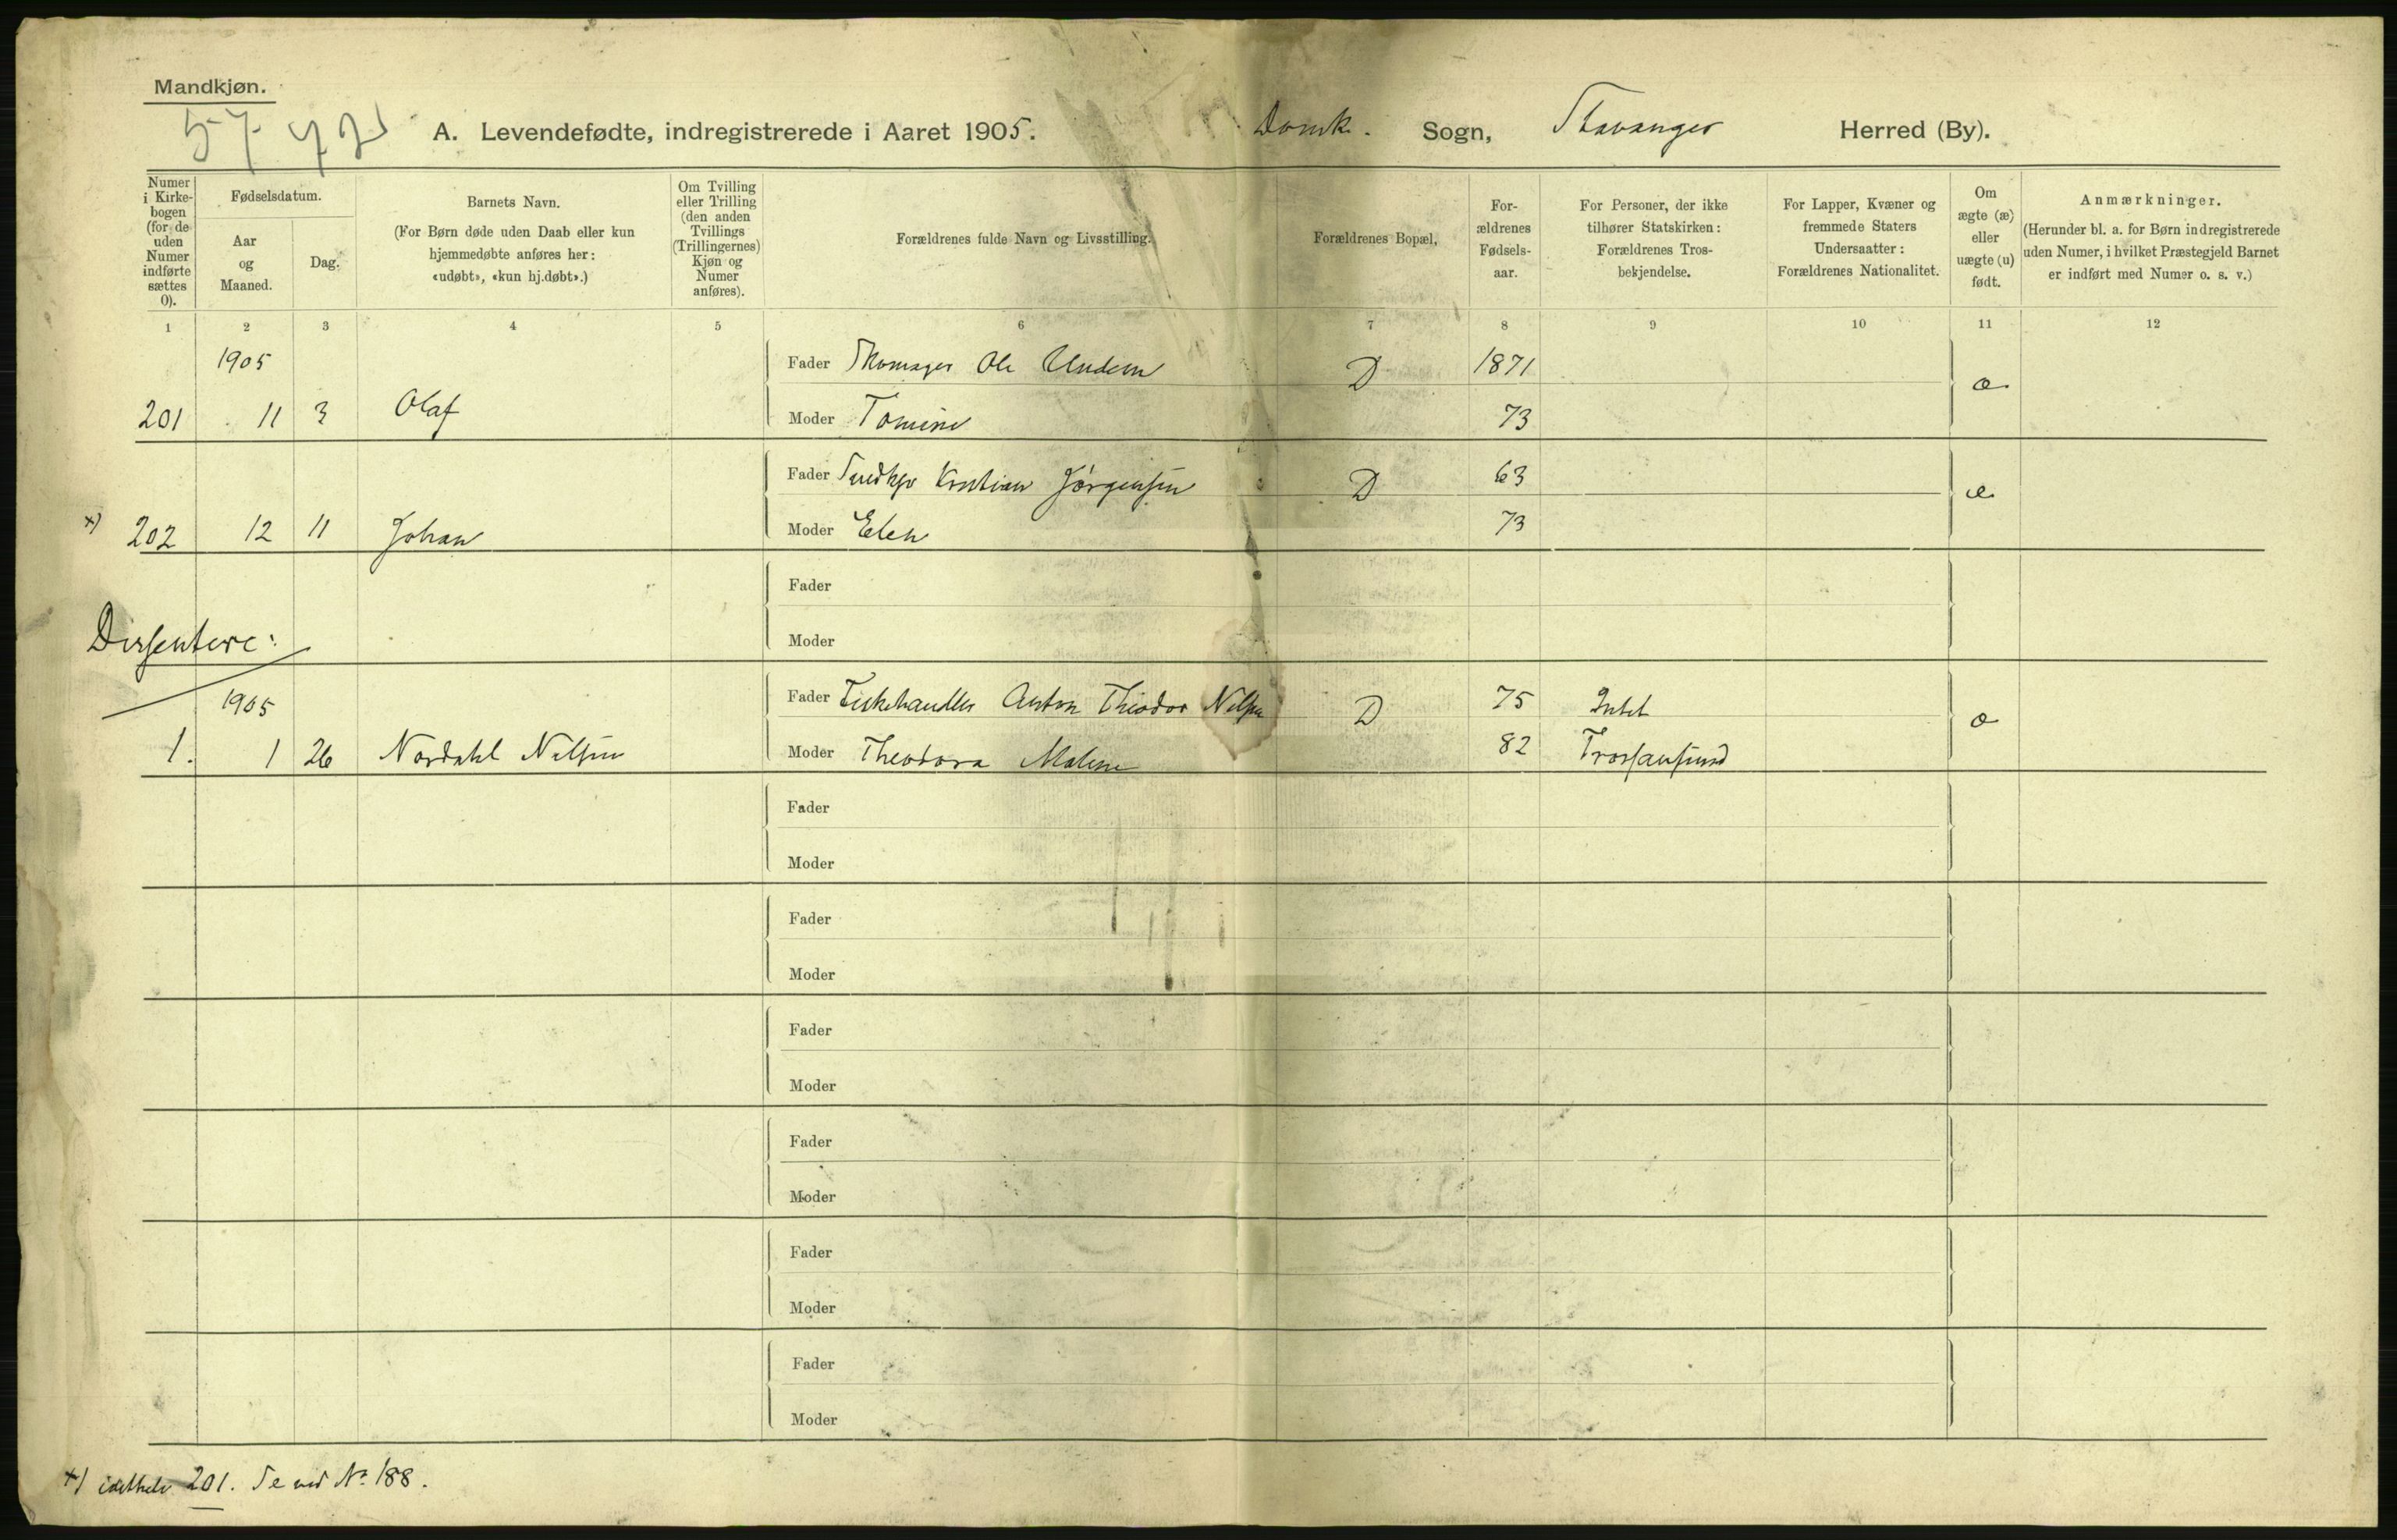 Mandkjøn.
57 42
A. Levendefødte, indregistrerede i Aaret 1905. Domk. Sogn, Stavanger Herred (By).
Numer i Kirkebogen (for de uden Numer indførte sættes 0).
Fødselsdatum.
Aar og Maaned.
Dag.
Barnets Navn.
(For Børn døde uden Daab eller kun hjemmedøbte anføres her: «udøbt», «kun hj.døbt».)
Om Tvilling eller Trilling (den anden Tvillings (Trillingernes) Kjøn og Numer anføres).
Forældrenes fulde Navn og Livsstilling.
Forældrenes Bopæl.
Forældrenes Fødselsaar.
For Personer, der ikke tilhører Statskirken: Forældrenes Trosbekjendelse.
For Lapper, Kvæner og fremmede Staters Undersaatter: Forældrenes Nationalitet.
Om ægte (æ) eller uægte (u) født.
Anmærkninger.
(Herunder bl. a. for Børn indregistrerede uden Numer, i hvilket Præstegjeld Barnet er indført med Numer o. s. v.)
1 2 3 4 5 6 7 8 9 10 11 12
1905 Fader Skomager Ole Undem D 1871 æ
201 11 3 Olaf Moder Tomine 73
Fader Snedker Kristian Jørgensen D 63 æ
x) 202 12 11 Johan Moder Elen 73
Fader
Dissentere:
Moder
1905 Fader Fiskehandler Anton Theodor Nilsen D 75 Intet æ
1. 1 26 Nordahl Nilsen Moder Theodora Malene 82 Trossamfund
Fader
Moder
Fader
Moder
Fader
Moder
Fader
Moder
Fader
Moder
Fader
Moder
x) idethele 201. Se ved No 188.